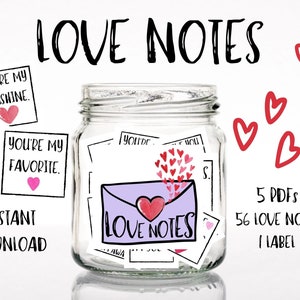 LOVE NOTES
RE MY
SHINE.
YOU'RE MY
FAVORITE.
STANT
NLOAD
YOU'RE
YOU
LOVE NOTES
5 PDFS
56 LOVE NO
1 LABEL